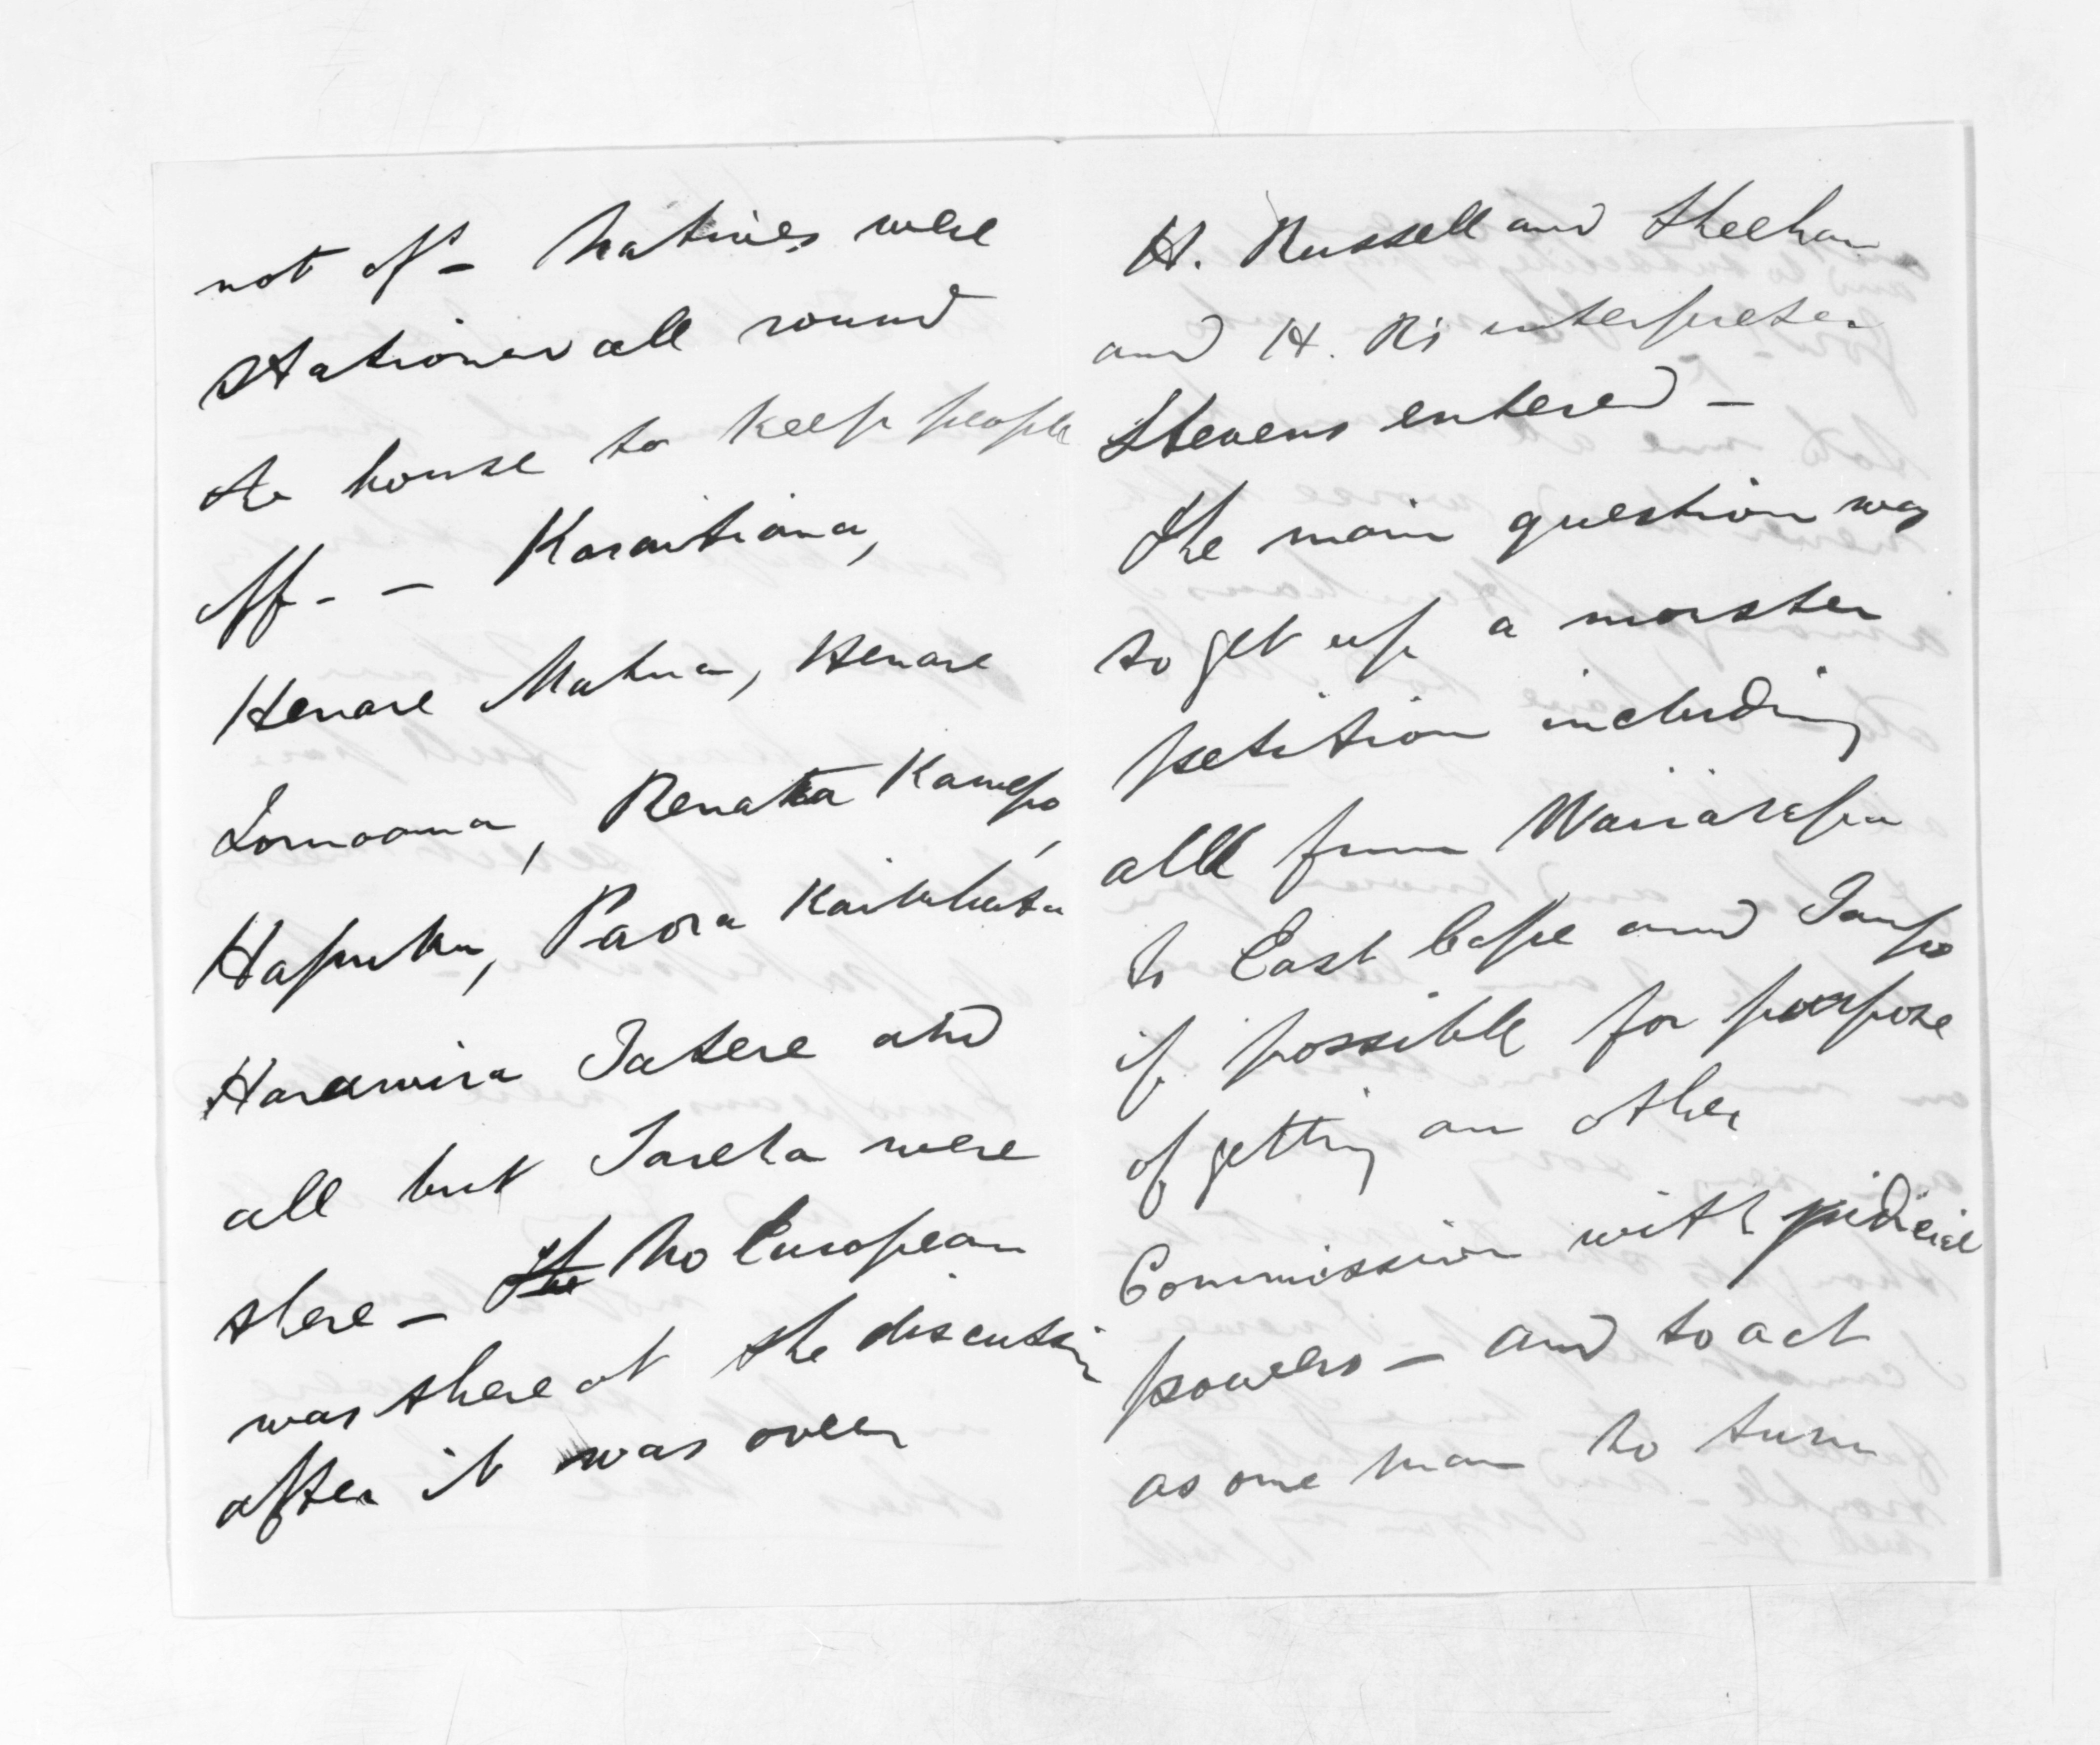 not of - Natives were
stationed all round
the house to keep people
off - - Karaitiana,
Henare Matua, Henare
Tomoana, Renata Kawepo,
Hapuku, Paora Kaiwhata
Haramira Tatere and
all but Tareha were
there - The No European
was there at the discussion
after it was over
H. Russell and Sheehan
and H. R's interpreter
Stevens entered -
The main question was
to get up a monster
petition including
all from Wairarapa
to East Cape and Taupo
if possible for purpose
of getting an other
Commission with judicial
powers - and to act
as one man to turn